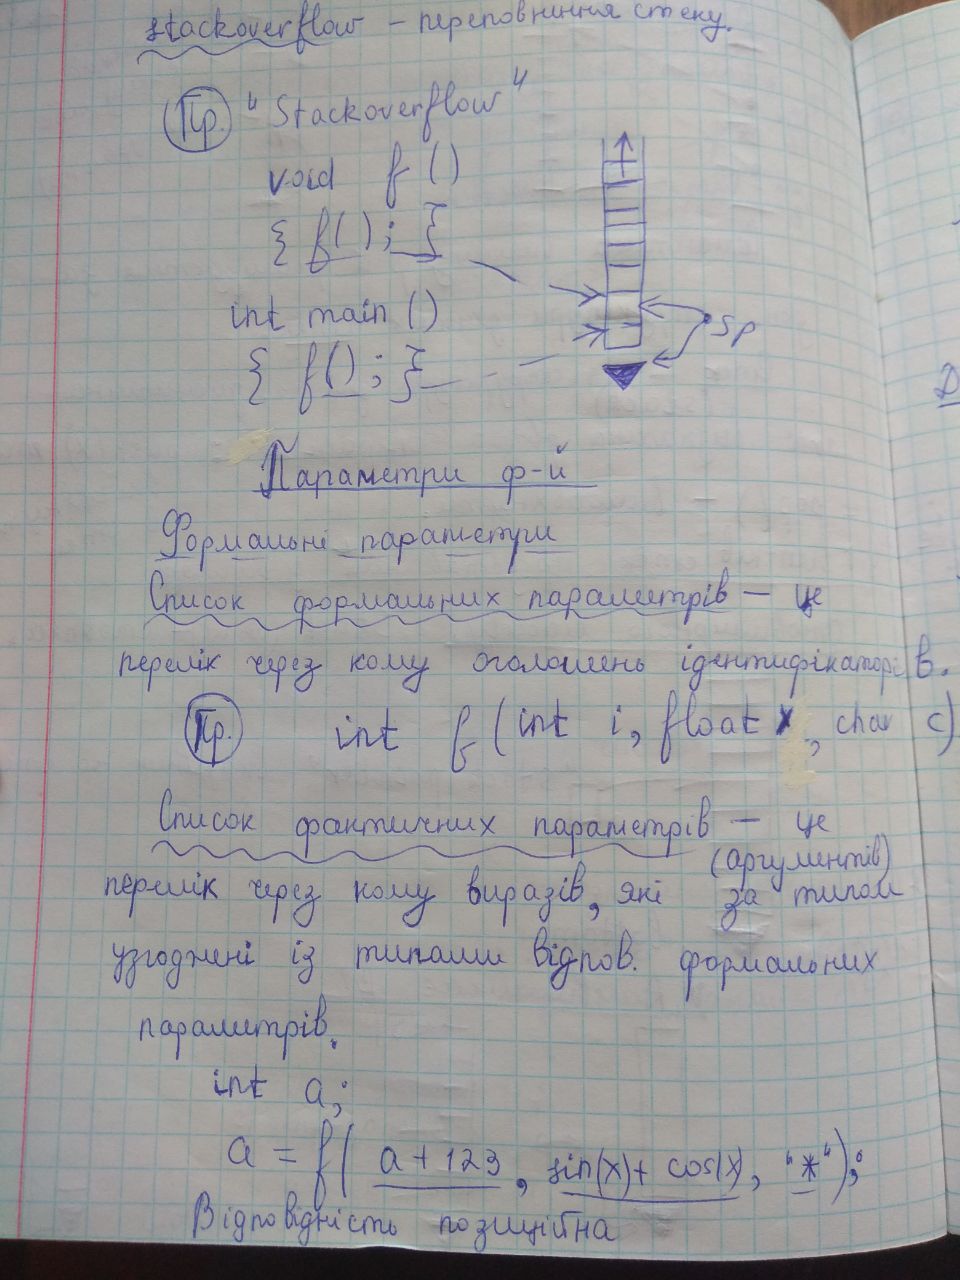 stackoverflow – переповнення стеку.
Пр. "Stackoverflow"
void f ()
{ f(); }
int main ()
{ f(); }
sp
Параметри ф-й
Формальні параметри
Список формальних параметрів — це
перелік через кому оголошень ідентифікаторів.
Пр. int f (int i, float x, char c)
Список фактичних параметрів — це
(аргументів)
перелік через кому виразів, які за типом
узгоджені із типами відпов. формальних
параметрів.
int a;
a = f( a+123, sin(x)+ cos(x), "*");
Відповідність позиційна